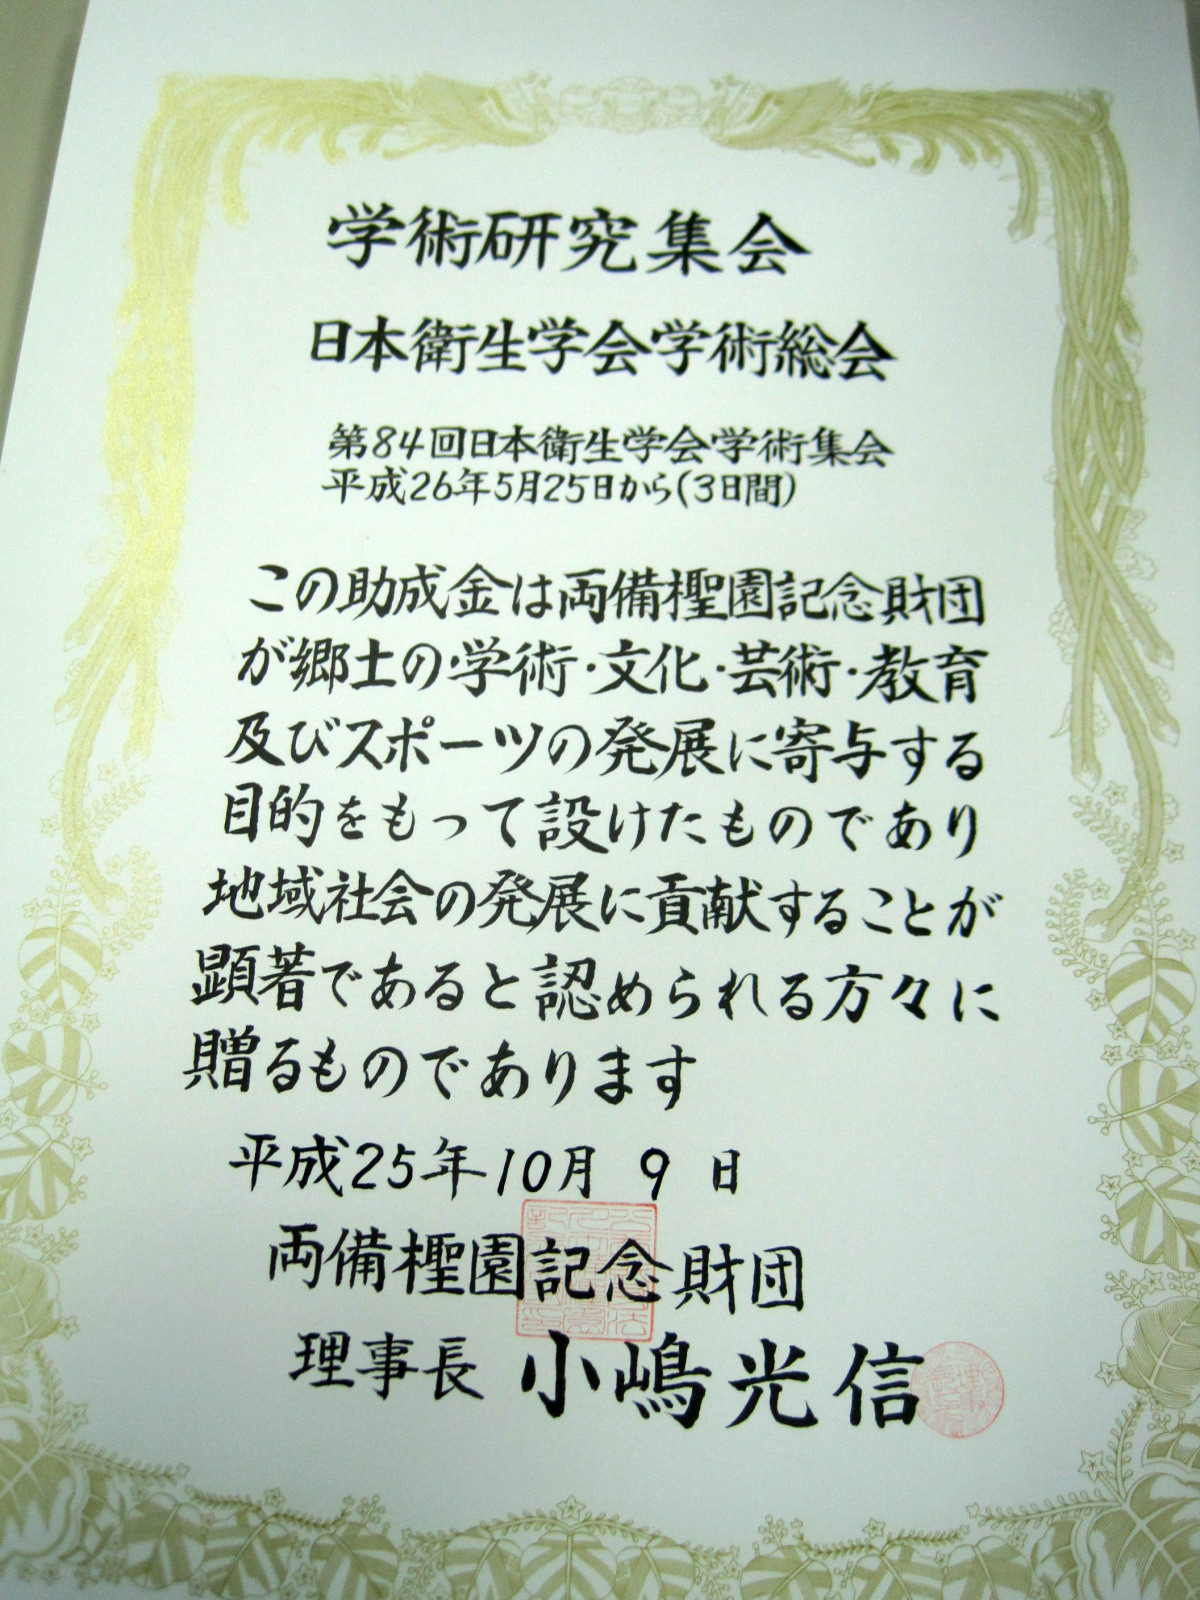 学術研究集会
日本衛生学会学術総会
第84回日本衛生学会学術集会
平成26年5月25日から(3日間)
この助成金は両備檉園記念財団
が郷土の学術・文化・芸術・教育
及びスポーツの発展に寄与する
目的をもって設けたものであり
地域社会の発展に貢献することが
顕著であると認められる方々に
贈るものであります
平成25年10月 9 日
両備檉園記念財団
理事長 小嶋光信